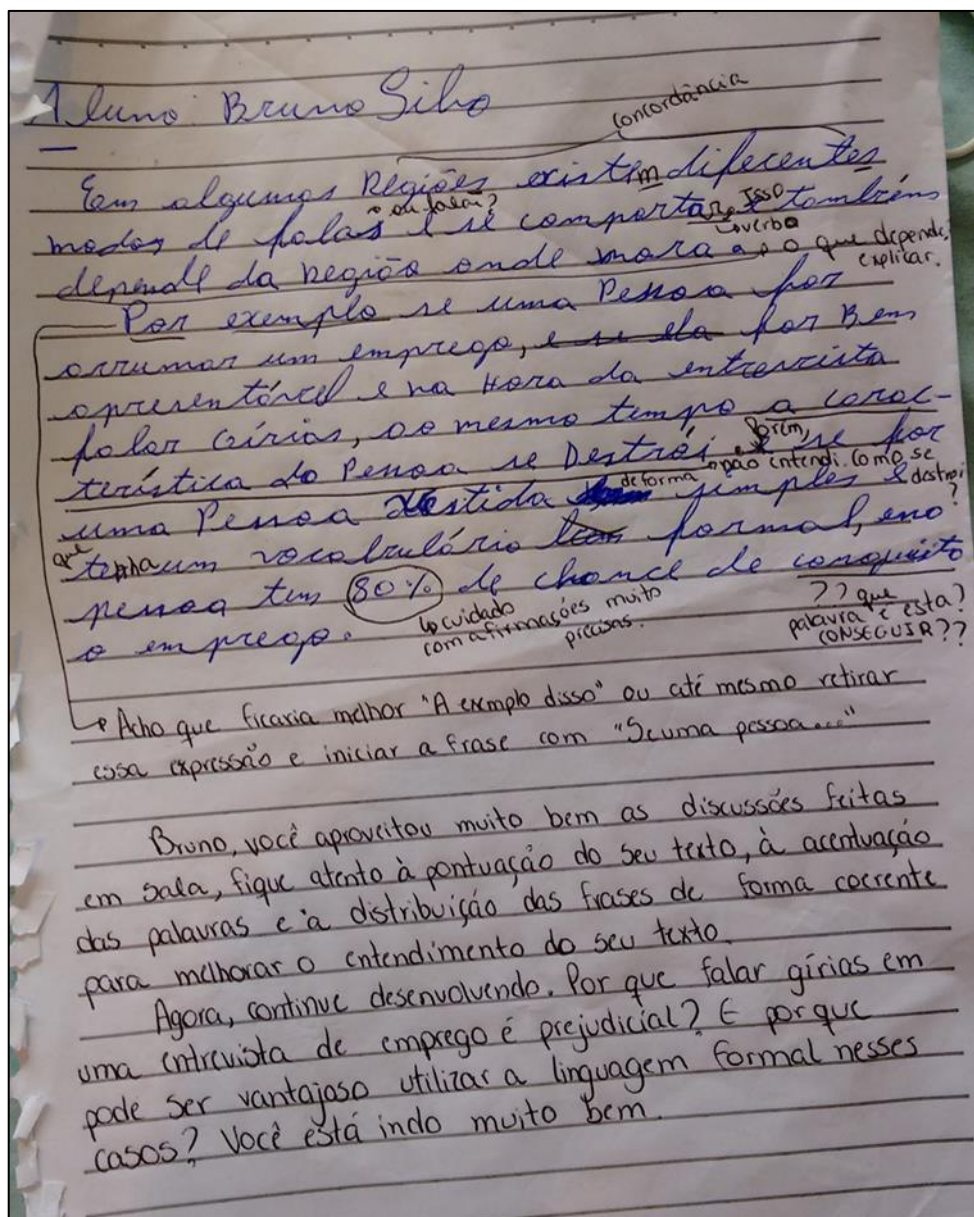 Aluno: Bruno Silva
concordância
Em algumas Regiões existem diferentes
→ ou falar?
Isso
modos de falas e se comportar, e tombéms
↳ verbo
depende da região onde mora → o que depende,
explicar.
Por exemplo se uma Pessoa for
arrumar um emprego, e se ela for Bem
apresentável e na Hora da entrevista
falar Gírias, ao mesmo tempo a carac-
Porém,
terística da Pessoa se Destrói e se for
→ não entendi. Como se
destrói
?
de forma
uma Pessoa Vestida simples e
que tenha um vocabulário formal, eno
pessoa tem 80% de chance de conquisto
↳ cuidado
com afirmações muito
precisas.
?? que
palavra é esta?
CONSEGUIR??
o emprego.
↳ Acho que ficaria melhor "A exemplo disso" ou até mesmo retirar
essa expressão e iniciar a frase com "Se uma pessoa..."
Bruno, você aproveitou muito bem as discussões feitas
em sala, fique atento à pontuação do seu texto, à acentuação
das palavras e à distribuição das frases de forma coerente
para melhorar o entendimento do seu texto.
Agora, continue desenvolvendo. Por que falar gírias em
uma entrevista de emprego é prejudicial? E por que
pode ser vantajoso utilizar a linguagem formal nesses
casos? Você está indo muito bem.